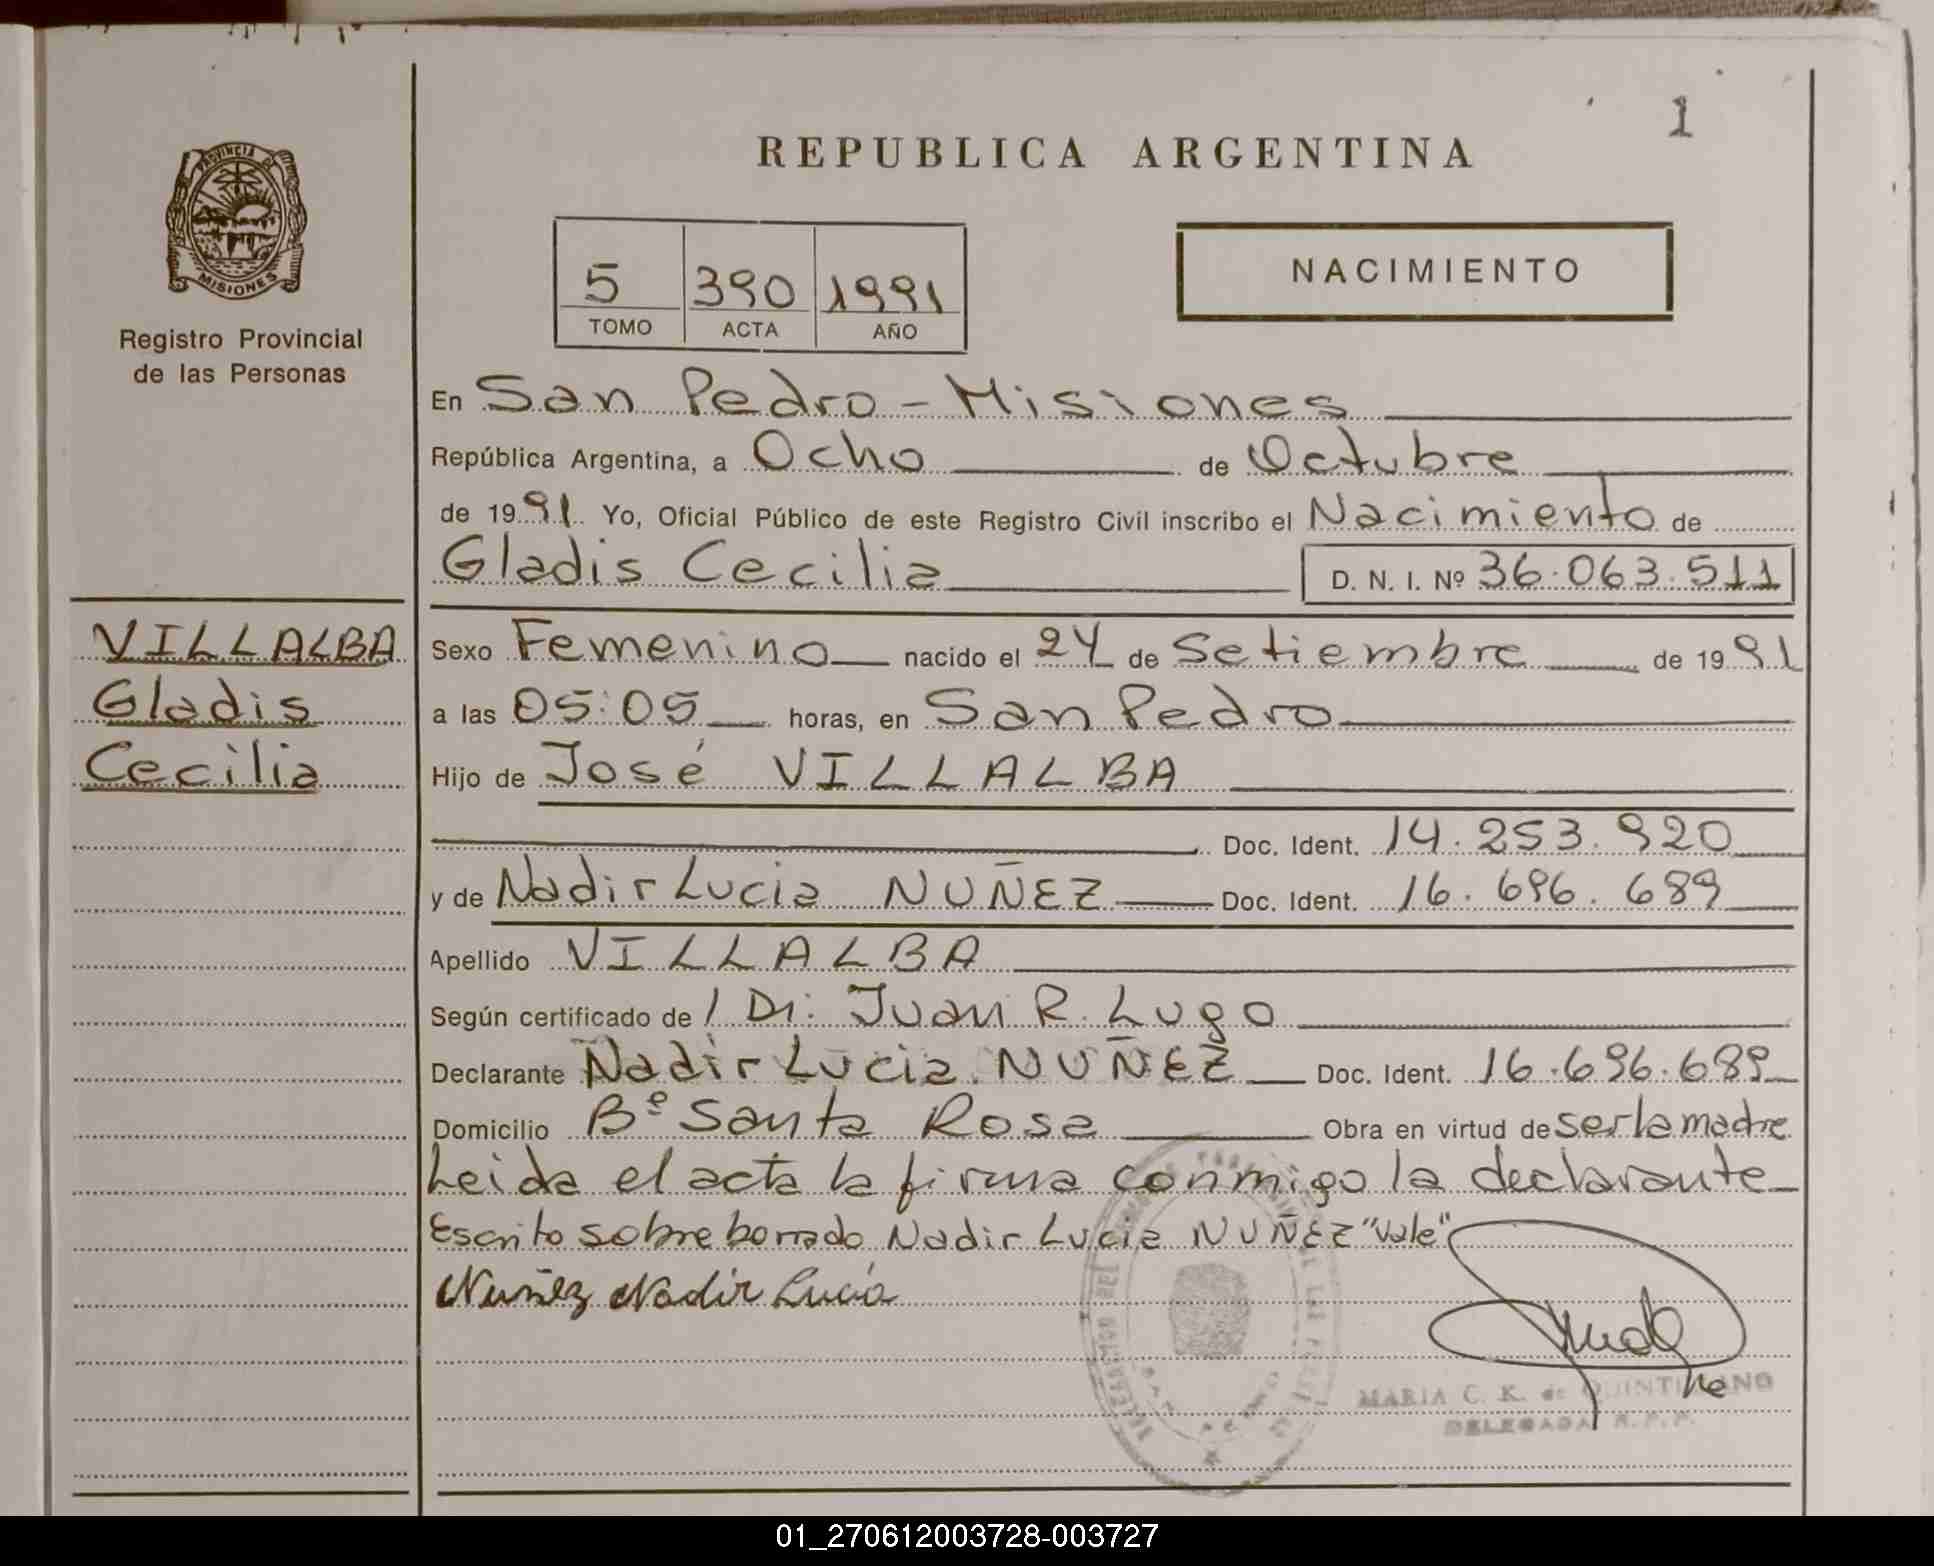 1
REPUBLICA ARGENTINA
PROVINCIA DE
MISIONES
Registro Provincial
de las Personas
5 390 1991
TOMO ACTA AÑO
NACIMIENTO
En San Pedro - Misiones
República Argentina, a Ocho de Octubre
de 1991. Yo, Oficial Público de este Registro Civil inscribo el Nacimiento de
Gladis Cecilia D. N. I. Nº 36.063.511
VILLALBA
Gladis
Cecilia
Sexo Femenino nacido el 24 de Setiembre de 1991
a las 05:05 horas, en San Pedro
Hijo de José VILLALBA
Doc. Ident. 14.253.920
y de Nadir Lucia NUÑEZ Doc. Ident. 16.696.689
Apellido VILLALBA
Según certificado de / Dr. Juan R. Lugo
Declarante Nadir Lucia NUÑEZ Doc. Ident. 16.696.689
Domicilio Bº Santa Rosa Obra en virtud de ser la madre
Leida el acta la firma conmigo la declarante
Escrito sobre borrado Nadir Lucia NUÑEZ "Vale"
Nuñez Nadir Lucia
MARIA C. K. de QUINTILIANO
DELEGADA R.P.P.
01_270612003728-003727